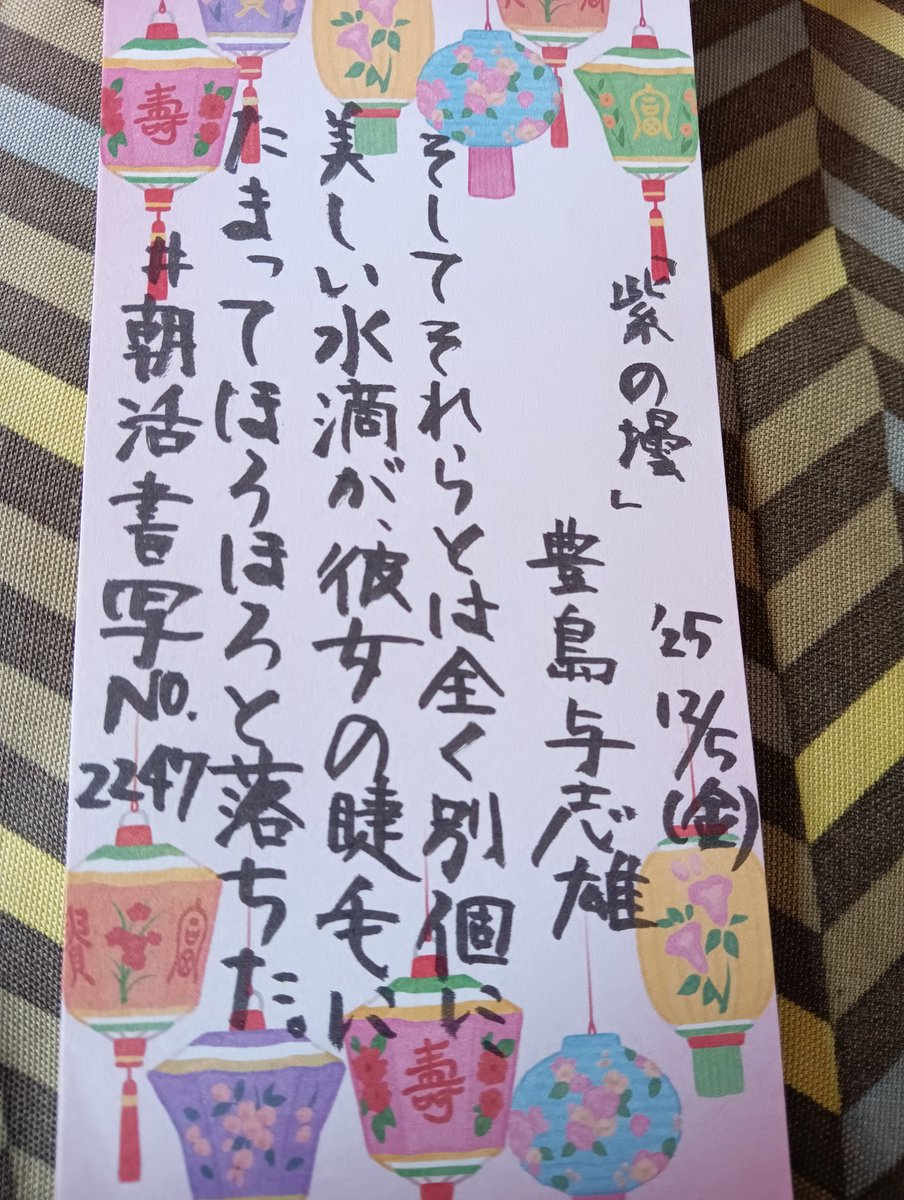 '25 12/5(金)
「紫の壜」
豊島与志雄
そしてそれらとは全く別個に、
美しい水滴が、彼女の睫毛に
たまってほろほろと落ちた。
#朝活書写
No.
2247
壽
壽